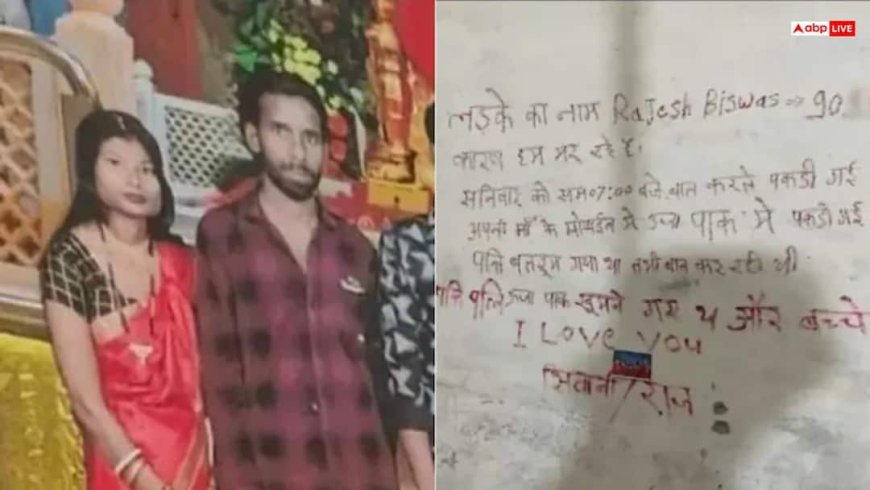 abp LIVE
लड़के का नाम Rajesh Biswas 90
कारण हम मर रहे है।
सनिवार को सम 07:00 बजे बात करते पकडी गई
अपनी माँ के मोबाईल से ऊर्जा पाक मे पकडी गई
पति बतरुम गया था तभी बात कर रही थी
पति पत्नि ऊर्जा पाक घूमने गए थे और बच्चे
I Love You
शिवानी/राज